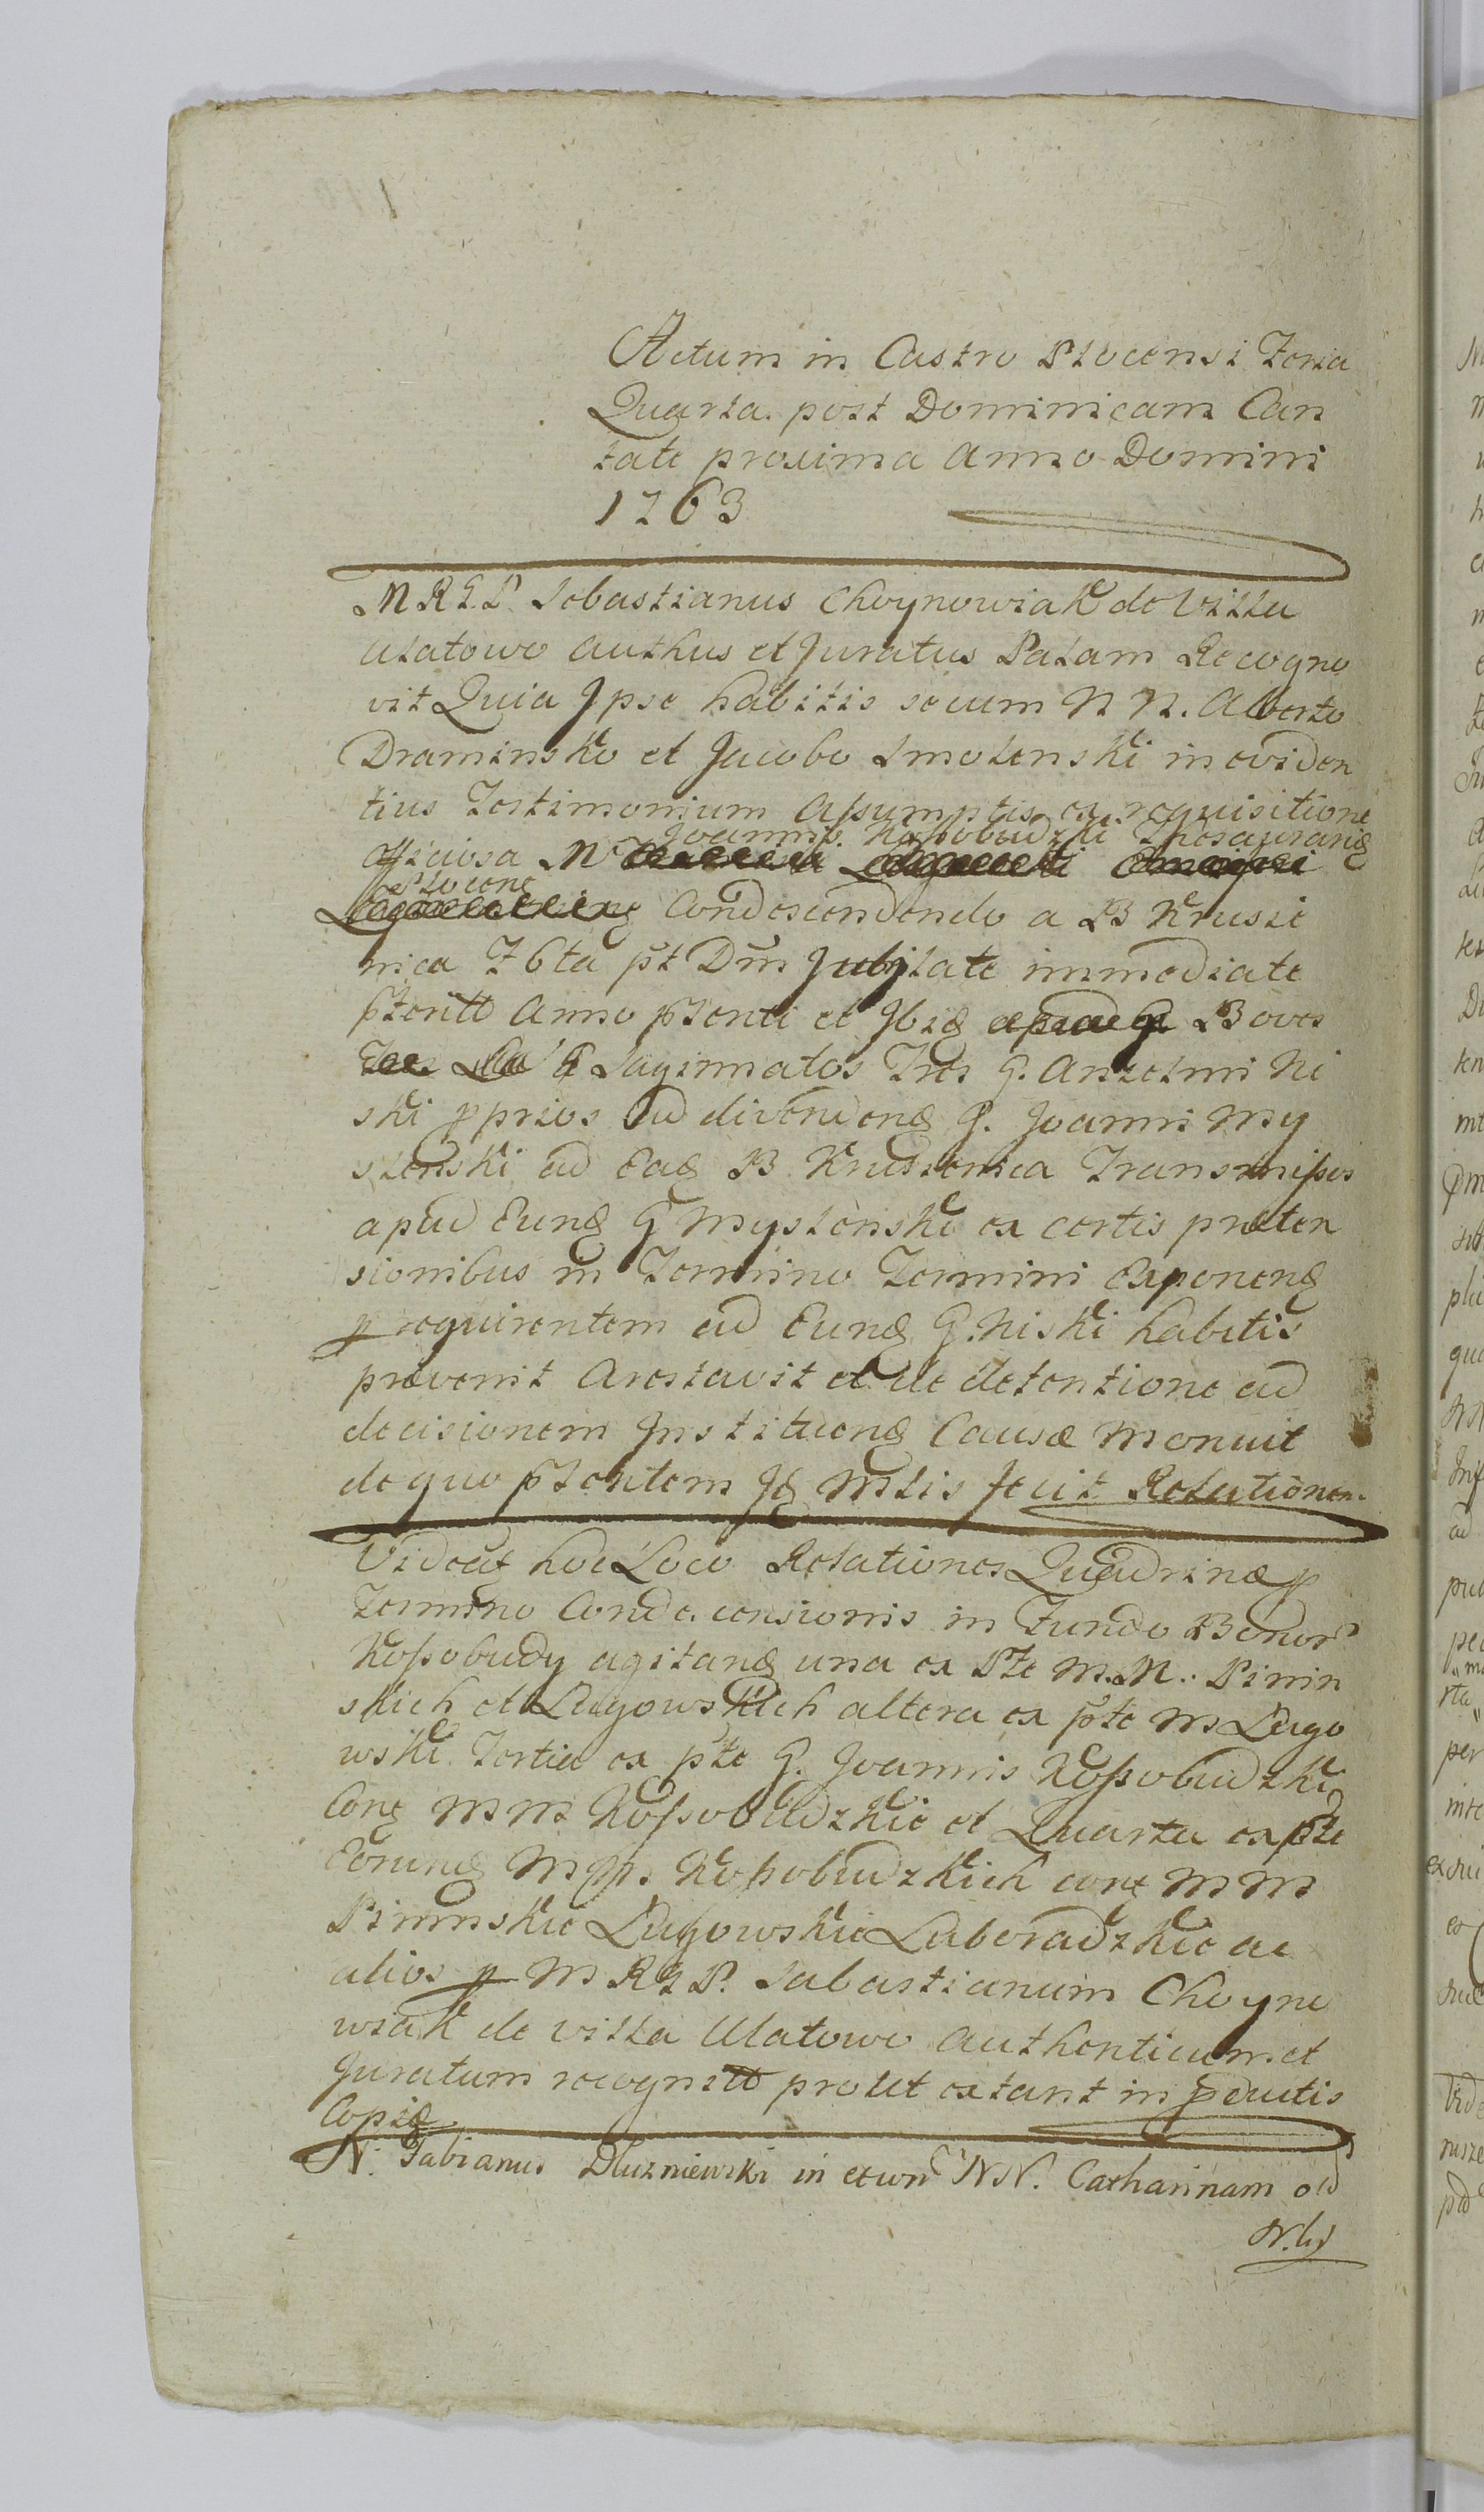 Actum in Castro Plocensi Feria
Quarta post Dominicam Can
tate proxima Anno Domini
1763
M R G P. Sebastianus Choynowiak de Villa
Ulatowo Authus et Juratus Palam Recogno
vit Quia Ipse habitis secum N N. Alberto
Draminsko et Jacobo Smolenski in eviden
tius Testimonium Assumptis ex requisitione
Joannis Kossobudzki Thesauraridę
officiosa M
Plocens
Condescendendo a B Krusze
nica Fbta pt Dm Jubilate immediate
pterito Anno psenti et Ibidę Boves
Saginnatos Tres G. Anzelmi Ni
ski pprios ad divendendę G. Joanni My
slenski ad Eadę B Kruszenica Transmissos
apud Eundę G Myslenski ex certis præten
sionibus in Termino Termini Exponendę
p requirentem ad Eundę G. Niski habitis
prævenit Arestavit et de detentione ad
decisionem Instituendę Causæ Monuit
de quo psentem Idę Mtlis fecit Relationem.
Videatę hoc Loco Relationes Quadrinæ p
Termino Condescensionis in Fundo Bonor
Kossobudy agitandę una ex Pte M. M. Pinin
skich et Lugowskich altera ex pte M Lugo
wski Tertia ex pte G. Joannis Kossobudzki
Contę M M Kossobudzkie et Quarta ex pte
Eorundę M M Kossobudzkich contę M M
Pininskie Lugowskie Luberadzkie ac
alios p M R G P. Sabastianum Choyno
wiak de villa Ulatowo Authenticum et
Juratum recognitt prout extant in peructis
Copię
N. Fabianus Dluzniewski in etwn NN. Catharinam olę